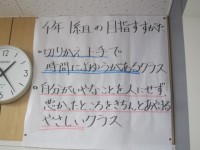 4年1組の目指すすがた
・切りかえ上手で
時間によゆうがあるクラス
・自分がいやなことを人にせず、
悪かったところをきちんとあやまる
やさしいクラス